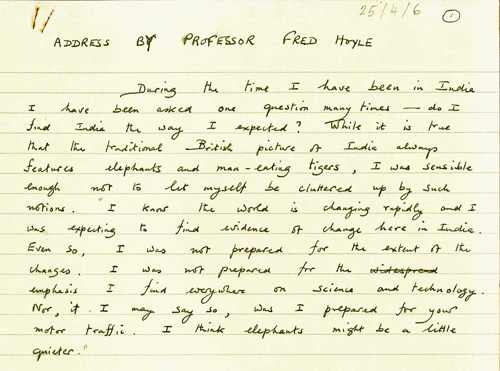 25/4/6 1
ADDRESS BY PROFESSOR FRED HOYLE
During the time I have been in India
I have been asked one question many times — do I
find India the way I expected? While it is true
that the traditional British picture of India always
features elephants and man-eating tigers, I was sensible
enough not to let myself be cluttered up by such
notions. "I know the world is changing rapidly and I
was expecting to find evidence of change here in India.
Even so, I was not prepared for the extent of the
changes. I was not prepared for the widespread
emphasis I find everywhere on science and technology.
Nor, if I may say so, was I prepared for your
motor traffic. I think elephants might be a little
quieter."